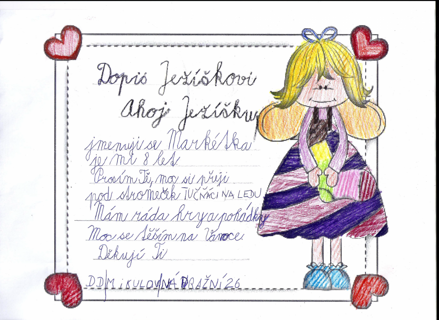 Dopis Ježíškovi
Ahoj Ježíšku
jmenuji se Markétka
je mi 8 let
Prosím Tě, moc si přeji
pod stromeček TUČŇÁCI NA LEDU
Mám ráda hry a pohádky
Moc se těším na Vánoce
Děkuji Ti
DD MIKULOV NÁDRAŽNÍ 26